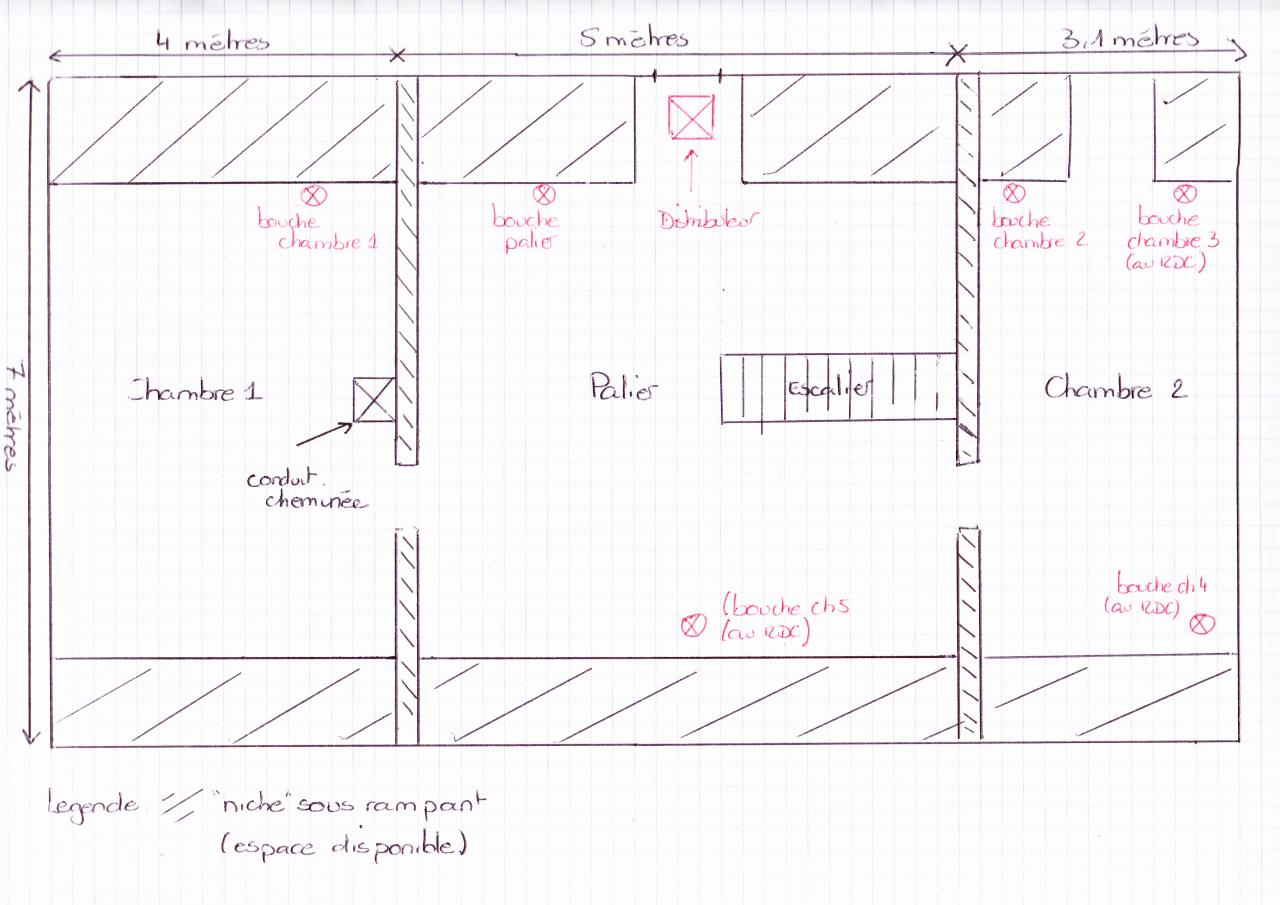 4 mètres
5 mètres
3,1 mètres
7 mètres
bouche
chambre 1
bouche
palier
Distributeur
bouche
chambre 2
bouche
chambre 3
(au RDC)
Chambre 1
Palier
Escalier
Chambre 2
conduit
cheminée
(bouche ch5
(au RDC)
bouche ch4
(au RDC)
Legende : "niche" sous rampant
(espace disponible)